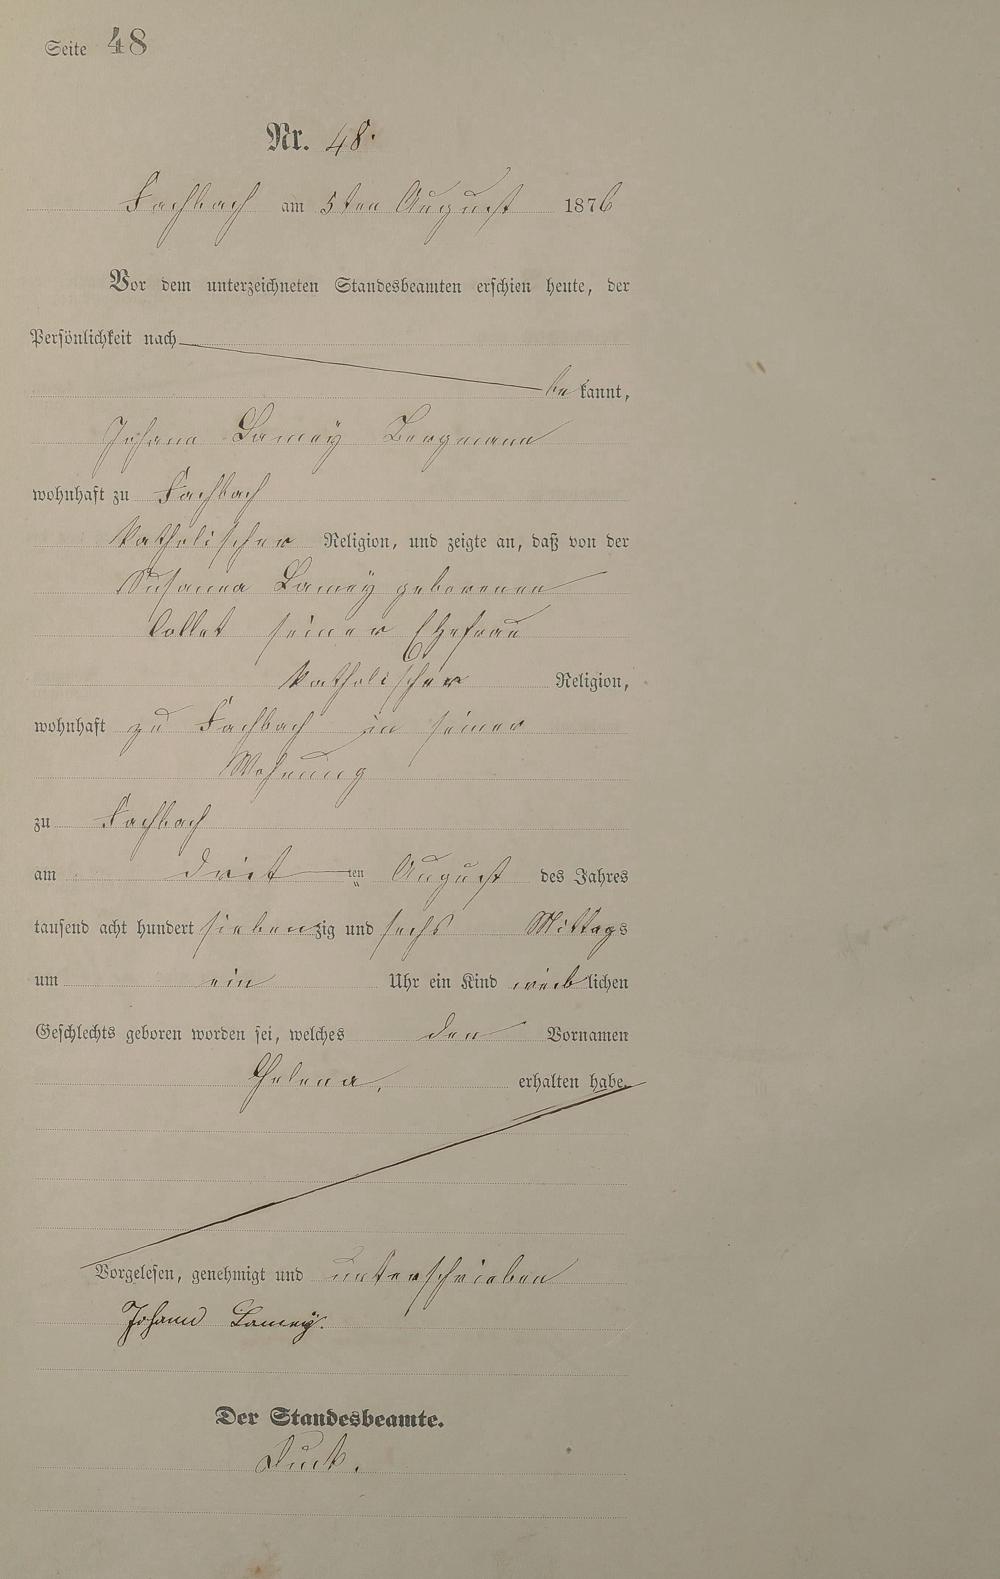 Seite 48
Nr. 48.
Fachbach am 5ten August 1876
Vor dem unterzeichneten Standesbeamten erschien heute, der
Persönlichkeit nach
bekannt,
Johann Lamey Bergmann
wohnhaft zu Fachbach
katholischer Religion, und zeigte an, daß von der
Susanna Lamey geborenen
Collet seiner Ehefrau
katholischer Religion,
wohnhaft zu Fachbach in seiner
Wohnung
zu Fachbach
am dritten August des Jahres
tausend acht hundert siebenzig und sechs Mittags
um ein Uhr ein Kind weiblichen
Geschlechts geboren worden sei, welches den Vornamen
Helena, erhalten habe.
Vorgelesen, genehmigt und unterschrieben
Johann Lamey.
Der Standesbeamte.